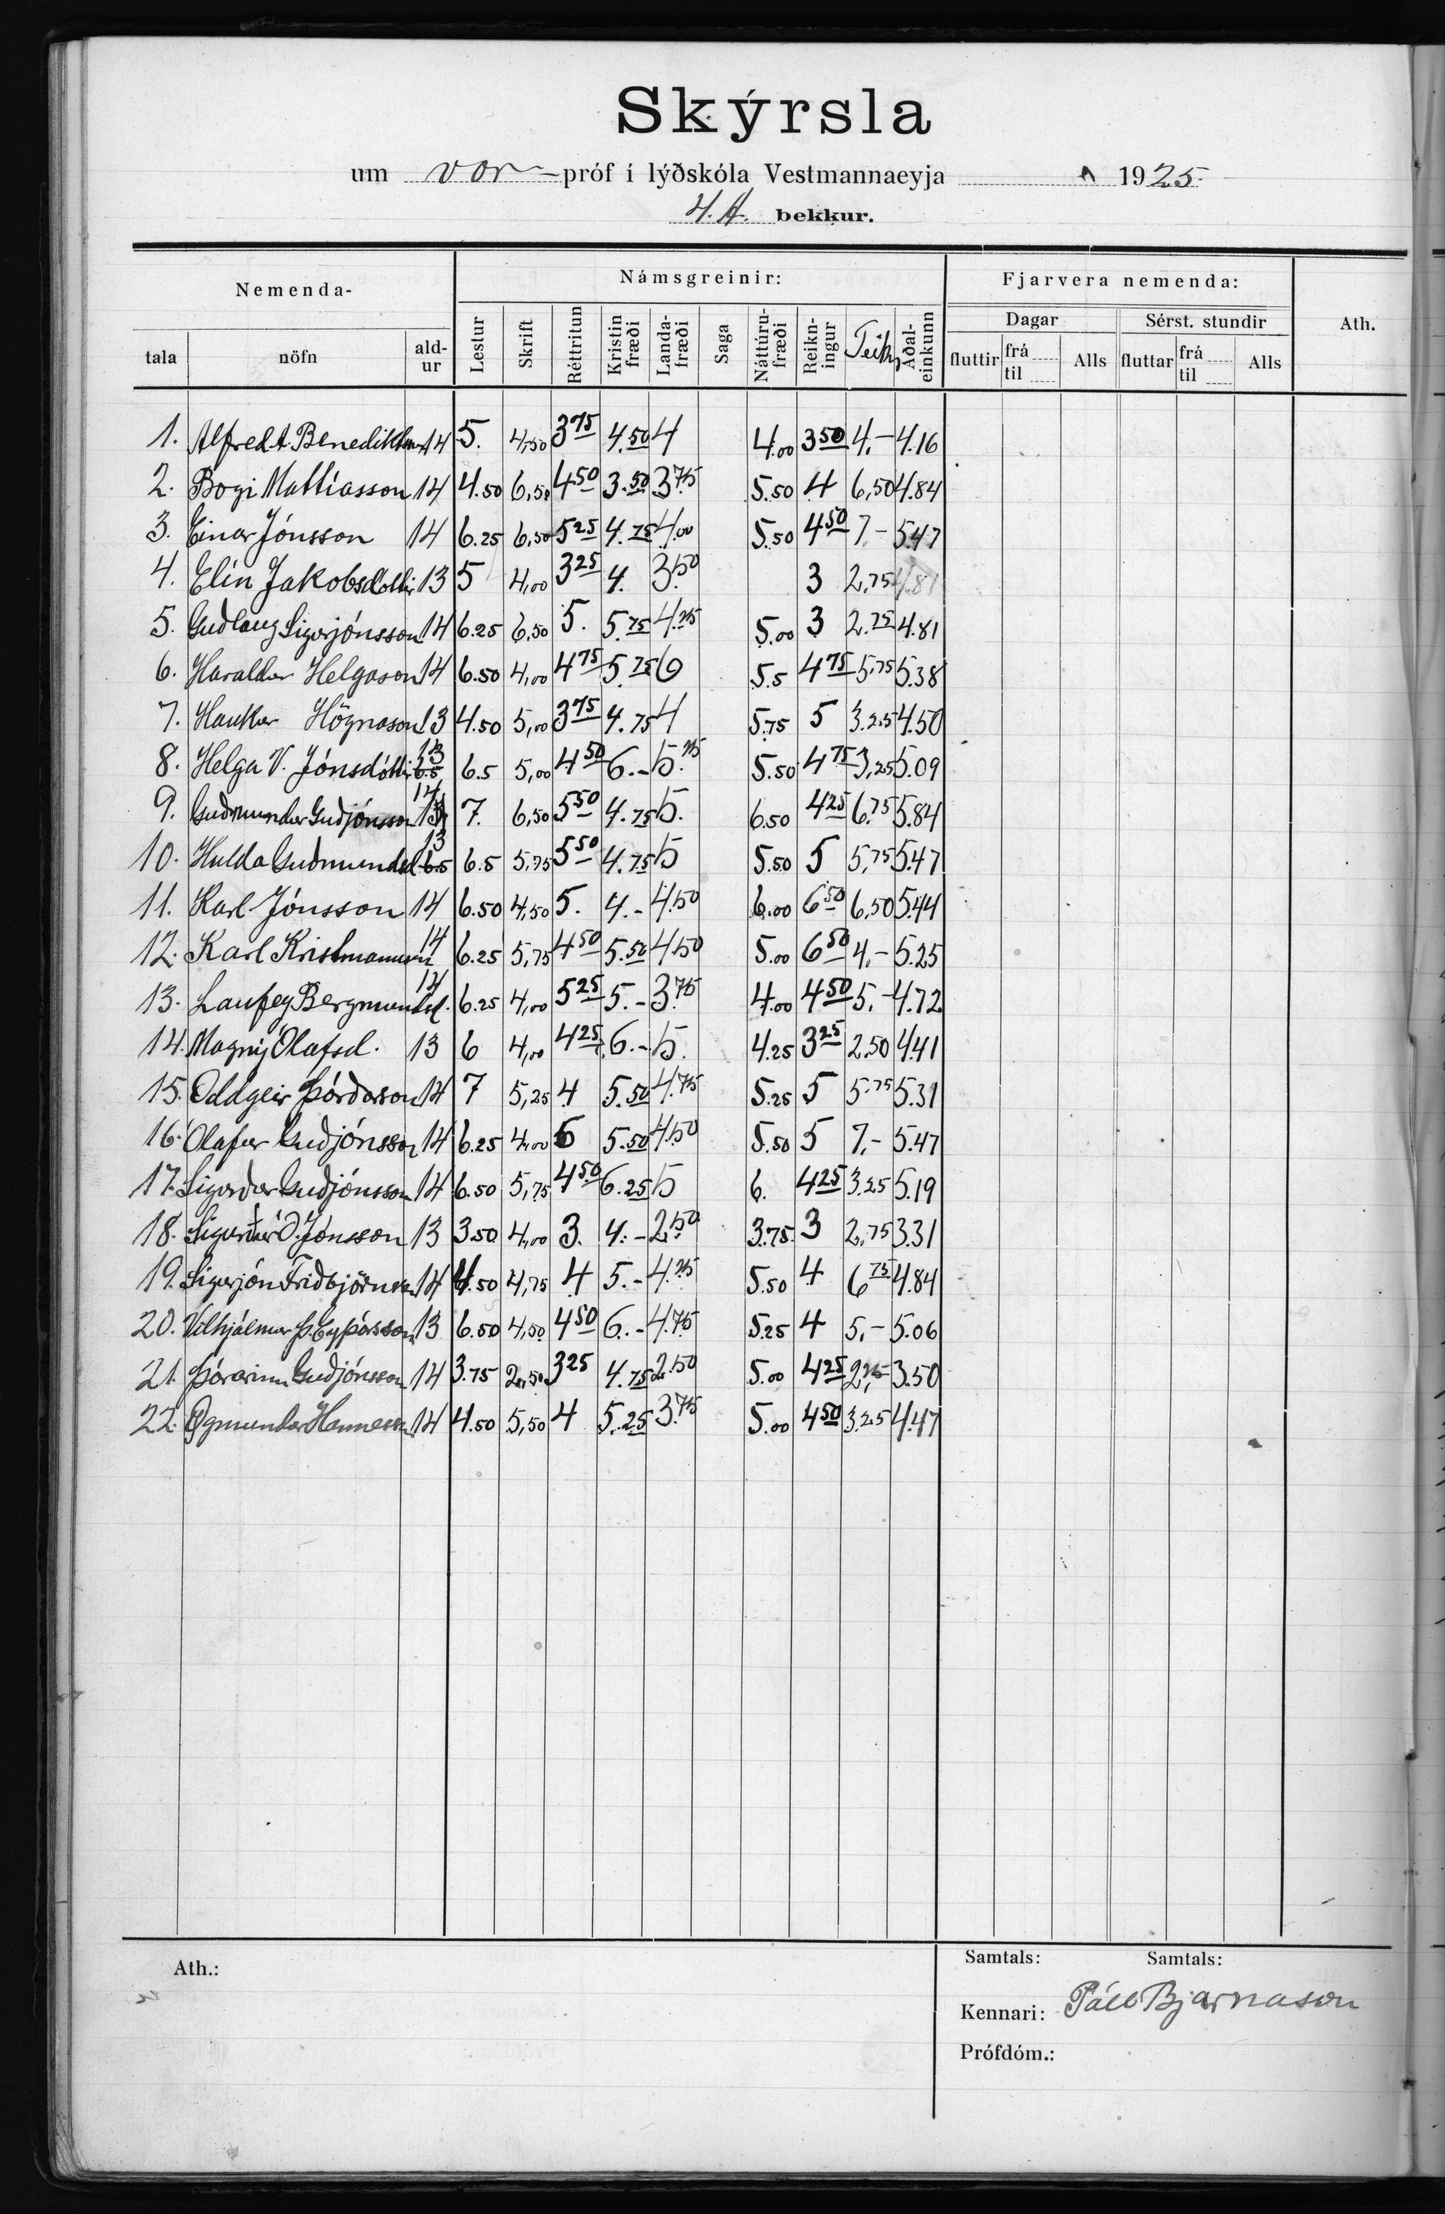 Skýrsla
um vor-próf í lýðskóla Vestmannaeyja 1925.
4. A. bekkur.
Nemenda- Námsgreinir: Fjarvera nemenda: Ath.
tala nöfn ald-ur Lestur Skrift Réttritun Kristin fræði Landa-fræði Saga Náttúru-fræði Reikn-ingur Teikn Aðal-einkunn Dagar Sérst. stundir
fluttir frá til Alls fluttar frá til Alls
1. Alfred A. Benediktss 14 5. 4,50 3 75 4.50 4 4.00 3 50 4,- 4.16
2. Bogi Mattíasson 14 4.50 6,50 4 50 3.50 3.75 5.50 4 6,50 4.84
3. Einar Jónsson 14 6.25 6,50 5 25 4.75 4.00 5.50 4 50 7,- 5.47
4. Elín Jakobsdóttir 13 5 4,00 3 25 4. 3.50 3 2,75 4.81
5. Guðlaug Sigurjónsson 14 6.25 6,50 5. 5.75 4.25 5.00 3 2.75 4.81
6. Haraldur Helgason 14 6.50 4,00 4 75 5.75 6 5.5 4 75 5,75 5.38
7. Haukur Högnason 13 4.50 5,00 3 75 4.75 4 5.75 5 3.25 4.50
8. Helga V. Jónsdóttir 13 6.5 6.5 5,00 4 50 6.- 5.25 5.50 4 75 3,25 5.09
9. Guðmundur Guðjónsson 14 13 7. 6,50 5 50 4.75 5. 6.50 4 25 6.75 5.84
10. Hulda Guðmundsd 13 6.5 6.5 5,75 5 50 4.75 5 5.50 5 5,75 5.47
11. Karl Jónsson 14 6.50 4,50 5. 4.- 4.50 6.00 6 50 6,50 5.44
12. Karl Kristmannsson 14 6.25 5,75 4 50 5.50 4.50 5.00 6 50 4,- 5.25
13. Laufey Bergmundsd. 14 6.25 4,00 5 25 5.- 3.75 4.00 4 50 5,- 4.72
14. Magný Ólafsd. 13 6 4,00 4 25 6.- 5. 4.25 3 25 2,50 4.41
15. Oddgeir Þórðarson 14 7 5,25 4 5.50 4.75 5.25 5 5.75 5.31
16. Ólafur Guðjónsson 14 6.25 4,00 6 5.50 4.50 5.50 5 7,- 5.47
17. Sigurður Guðjónsson 14 6.50 5,75 4 50 6.25 5 6. 4 25 3.25 5.19
18. Sigurður Ó. Jónsson 13 3.50 4,00 3. 4.- 2.50 3.75 3 2,75 3.31
19. Sigurjón Friðbjörnss 14 4.50 4,75 4 5.- 4.25 5.50 4 6 75 4.84
20. Vilhjálmur Þ. Eyþórsson 13 6.50 4,50 4 50 6.- 4.75 5.25 4 5,- 5.06
21. Þórarinn Guðjónsson 14 3.75 2,50 3 25 4.75 2.50 5.00 4 25 2,25 3.50
22. Ögmundur Hannesson 14 4.50 5,50 4 5.25 3.75 5.00 4 50 3.25 4.47
Ath.: Samtals: Samtals:
Kennari: Páll Bjarnason
Prófdóm.: